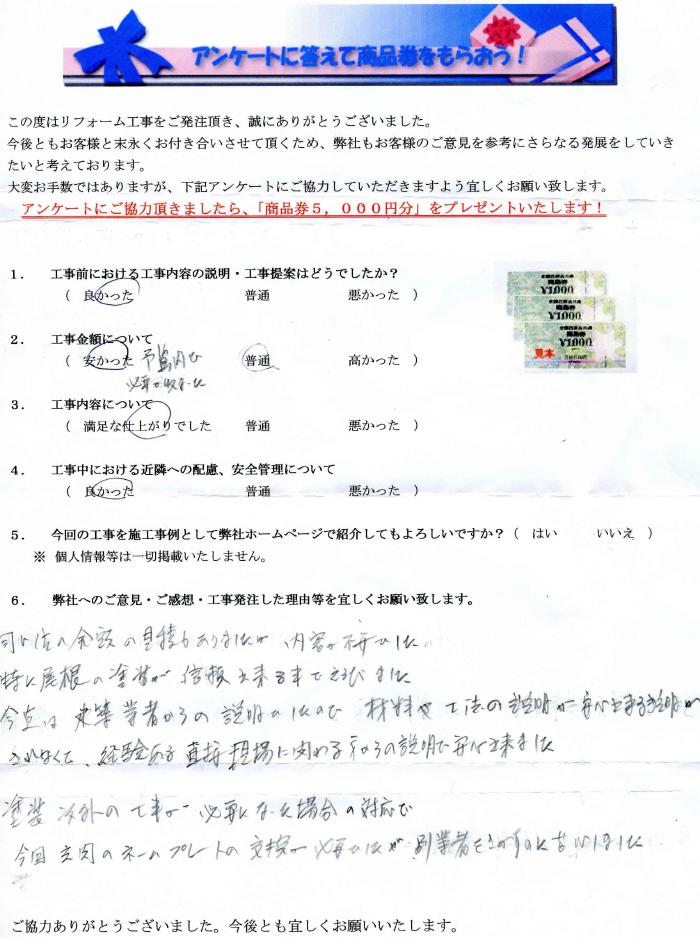 アンケートに答えて商品券をもらおう！
この度はリフォーム工事をご発注頂き、誠にありがとうございました。
今後ともお客様と末永くお付き合いさせて頂くため、弊社もお客様のご意見を参考にさらなる発展をしていき
たいと考えております。
大変お手数ではありますが、下記アンケートにご協力していただきますよう宜しくお願い致します。
アンケートにご協力頂きましたら、「商品券５，０００円分」をプレゼントいたします！
１． 工事前における工事内容の説明・工事提案はどうでしたか？
（ 良かった 普通 悪かった ）
２． 工事金額について
（ 安かった 予算内で 普通 高かった ）
３． 工事内容について
（ 満足な仕上がりでした 普通 悪かった ）
４． 工事中における近隣への配慮、安全管理について
（ 良かった 普通 悪かった ）
５． 今回の工事を施工事例として弊社ホームページで紹介してもよろしいですか？（ はい いいえ ）
※ 個人情報等は一切掲載いたしません。
６． 弊社へのご意見・ご感想・工事発注した理由等を宜しくお願い致します。
の金額の見積もありましたが 内容が
特に屋根の塗装が信頼出来るまで
業者からの説明 材料や工法の説明が
経験ある直接現場に関わる からの説明で安心出来ました
塗装以外の工事が必要になった場合の対応で
今回玄関のネームプレートの交換が必要でしたが 別業者をさがすのに
ご協力ありがとうございました。今後とも宜しくお願いいたします。
¥1,000
¥1,000
商品券
¥1,000
見本